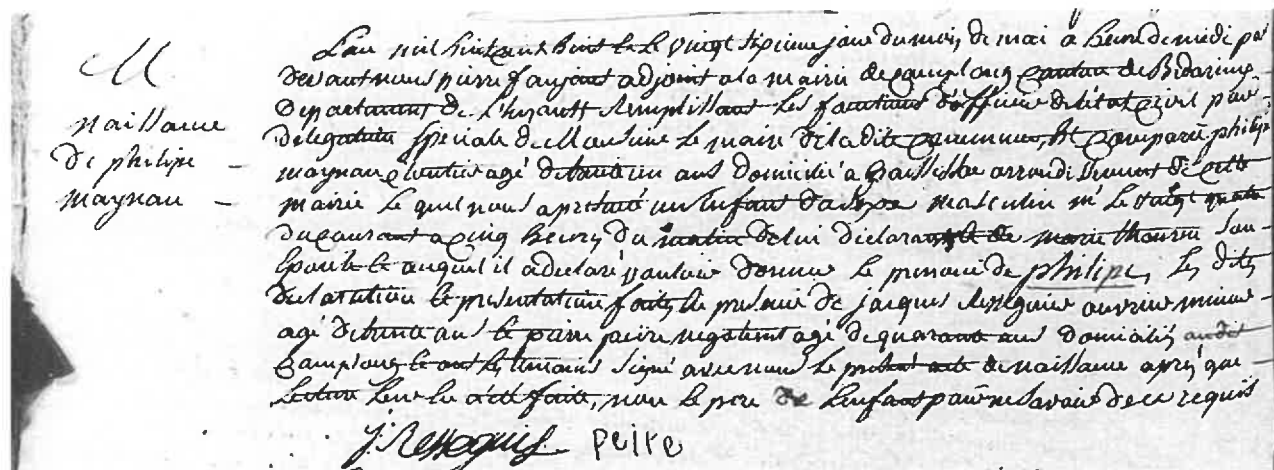 M
naissance
de philipe
maynau
L'an mil huit cent huit et le vingt sixieme jour du mois de mai a heure de midi par
devant nous pierre adjoint a la mairie de camplong canton de Bedarieux
departement de l'herault remplissant les fonctions d'officier de l'état civil par
delegation speciale de Monsieur le maire de la dite commune, est comparu philipe
maynau agé de trente un ans domicilié à arrondissement de cette
mairie le quel nous a presenté un enfant du sexe masculin né le vingt quatre
du courant a cinq heures du matin de lui declarant et de marie son
epouse et auquel il a declaré vouloir donner le prenom de philipe, les dites
declaration et presentation faites en presence de jacques ouvrier mineur
agé de trente ans et pierre peire negotiant agé de quarante ans domiciliés audit
camplong et ont les temoins signé avec nous le present acte de naissance après que
lecture leur en a été faite, non le pere de l'enfant pour ne savoir de ce requis
peire